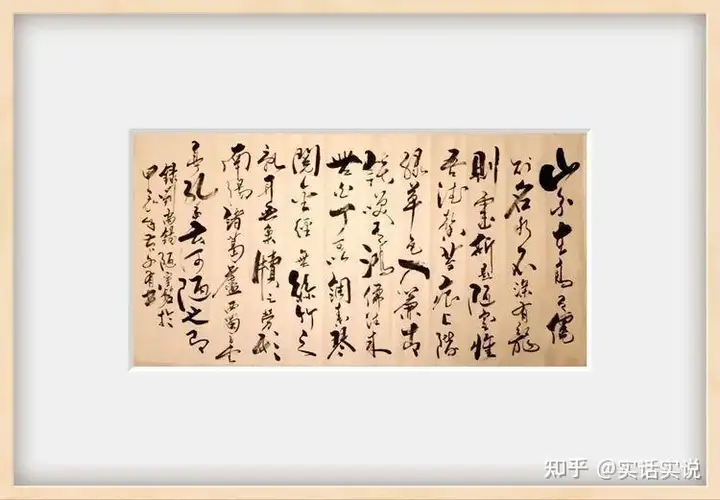 山不在高有僊
則名水不深有龍
則靈斯是陋室惟
吾德馨苔痕上階
綠草色入簾青
談笑有鴻儒往來
無白丁可以調素琴
閱金經無絲竹之
亂耳無案牘之勞形
南陽諸葛廬西蜀子雲
亭孔子云何陋之有
錄劉禹錫陋室銘於
甲午年書
知乎 @实话实说